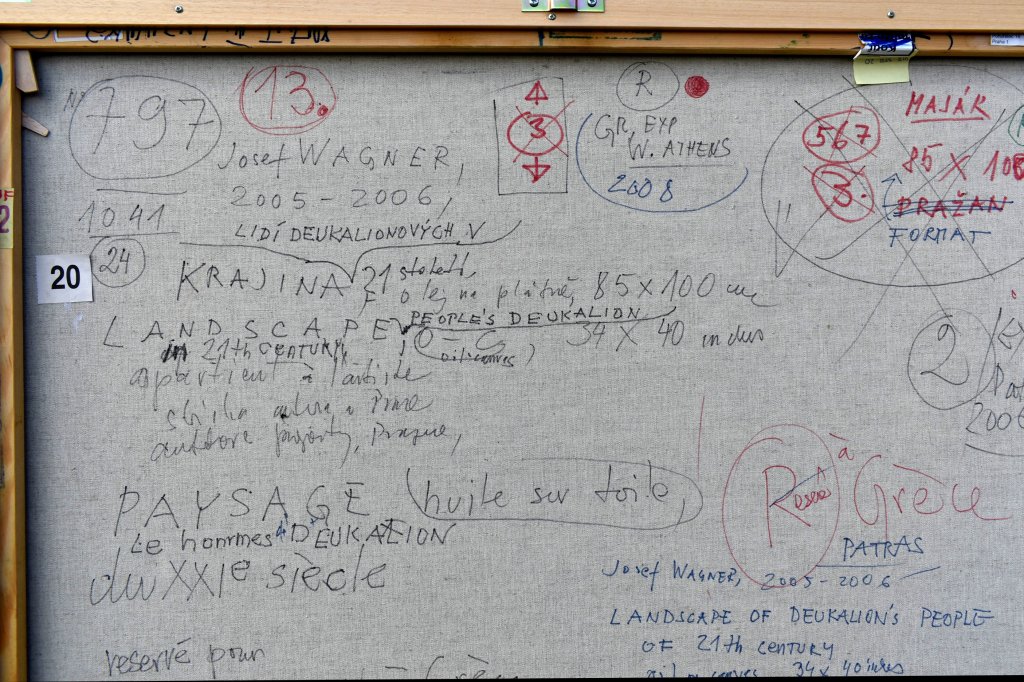 797
13.
Josef WAGNER,
2005 - 2006,
1041
LIDÍ DEUKALIONOVÝCH V
24
20
KRAJINA 21 století,
olej na plátně, 85 x 100 cm
LANDSCAPE,
PEOPLE'S DEUKALION
34 X 40 inches
in 21th CENTURY,
oil canvas
appartient à l'artiste
sbírka autora
Prague,
PAYSAGE huile sur toile,
Le hommes D'EUKALION
du XXIe siècle
reservé pour
3
R
GR, EXP
W. ATHENS
2008
567
3.
MAJÁK
85 X 100
PRAŽAN
FORMAT
2
2006
Reservé
à
Grèce
PATRAS
Josef WAGNER, 2005 - 2006
LANDSCAPE OF DEUKALION'S PEOPLE
OF 21th CENTURY
oil on canvas 34 x 40 inches